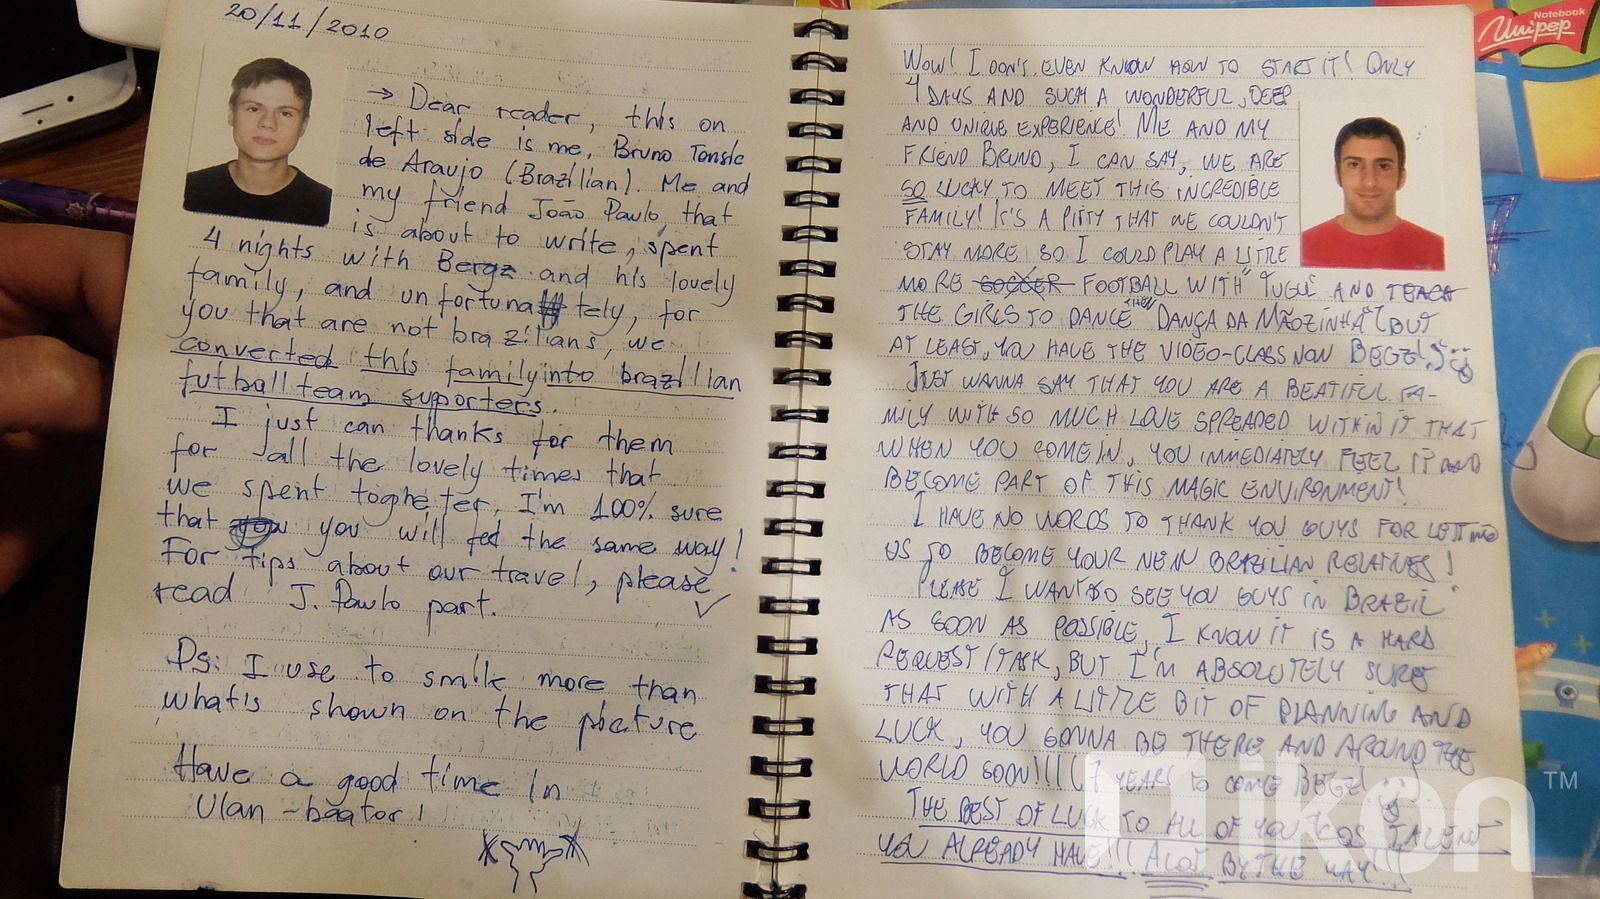 20/11/2010
→ Dear reader, this on
left side is me, Bruno Tonsic
de Araujo (Brazilian). Me and
my friend João Paulo, that
is about to write, spent
4 nights with Bergz and his lovely
family, and unfortunately, for
you that are not brazilians, we
converted this family into brazilian
futball team suporters.
I just can thanks for them
for all the lovely times that
we spent togheter, I'm 100% sure
that you will feel the same way!
For tips about our travel, please
read J. Paulo part.
Ps: I use to smile more than
what's shown on the picture
Have a good time in
Ulan-baator!
WOW! I DON'T EVEN KNOW HOW TO START IT! ONLY
4 DAYS AND SUCH A WONDERFUL, DEEP
AND UNIQUE EXPERIENCE! ME AND MY
FRIEND BRUNO, I CAN SAY, WE ARE
SO LUCKY TO MEET THIS INCREDIBLE
FAMILY! IT'S A PITTY THAT WE COULDN'T
STAY MORE SO I COULD PLAY A LITTLE
MORE SOCCER FOOTBALL WITH "TUGUI" AND TEACH
THE GIRLS TO DANCE THEN "DANÇA DA MÃOZINHA" (BUT
AT LEAST, YOU HAVE THE VIDEO-CLASS NOW BEGZ!)
JUST WANNA SAY THAT YOU ARE A BEATIFUL FA-
MILY WITH SO MUCH LOVE SPREADED WITHIN IT THAT
WHEN YOU COME IN, YOU IMMEDIATELY FEEL IT AND
BECOME PART OF THIS MAGIC ENVIRONMENT!
I HAVE NO WORDS TO THANK YOU GUYS FOR LETTING
US TO BECOME YOUR NEW BRAZILIAN RELATIVES!
PLEASE I WANT TO SEE YOU GUYS IN BRAZIL
AS SOON AS POSSIBLE, I KNOW IT IS A HARD
REQUEST/TASK, BUT I'M ABSOLUTELY SURE
THAT WITH A LITTLE BIT OF PLANNING AND
LUCK, YOU GONNA BE THERE AND AROUND THE
WORLD SOON!!! (7 YEARS TO COME BEGZ!
THE BEST OF LUCK TO ALL OF YOU 'COS TALENT
YOU ALREADY HAVE!!! ALOT BY THE WAY!!!
Notebook
Unipep
ikon™